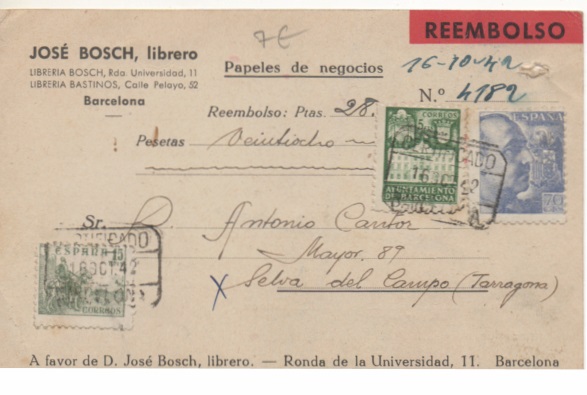 7€
REEMBOLSO
JOSÉ BOSCH, librero
LIBRERIA BOSCH, Rda. Universidad, 11
LIBRERIA BASTINOS, Calle Pelayo, 52
Barcelona
Papeles de negocios
16-10-42
N.º 4182
Reembolso: Ptas. 28.
Pesetas Veintiocho
CORREOS
5
AYUNTAMIENTO DE BARCELONA
ESPAÑA
70
16 OCT 42
Sr. D. Antonio Cantor
Mayor, 89
X Selva del Campo (Tarragona)
CERTIFICADO
ESPAÑA 15
16 OCT 42
CORREOS
A favor de D. José Bosch, librero. — Ronda de la Universidad, 11. Barcelona